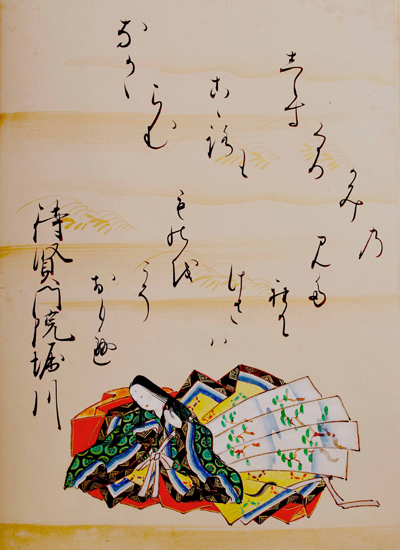 なか
らむ
こゝ路も
志らす
くろ
かみ乃
みた
れて
けさハ
ものを
こそ
おもへ
待賢門院堀川